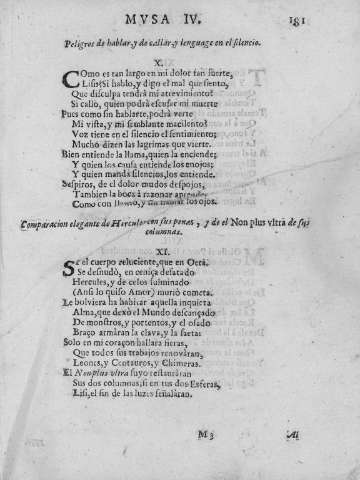 MVSA IV. 181
Peligros de hablar, y de callar, y lenguage en el silencio.
X.
COmo es tan largo en mi dolor tan fuerte,
Lisis? Si hablo, y digo el mal que siento,
Que disculpa tendrà mi atrevimiento?
Si callo, quien podrà escusar mi muerte
Pues como sin hablarte, podrà verte
Mi vista, y mi semblante macilento?
Voz tiene en el silencio el sentimiento;
Mucho dizen las lagrimas que vierte.
Bien entiende la llama, quien la enciende;
Y quien los causa entiende los enojos;
Y quien manda silencios, los entiende.
Suspiros, de el dolor mudos despojos,
Tambien la boca à razonar
Como con llanto, y sin razonar los ojos.
Comparacion elegante de Hercules con sus penas, y de el Non plus vltrà de sus
columnas.
XI.
SI el cuerpo reluciente, que en Oeta
Se desnudò, en ceniça desatado
Hercules, y de celos fulminado
(Ansi lo quiso Amor) muriò cometa.
Le bolviera ha habitar aquella inquieta
Alma, que dexò el Mundo descançado
De monstros, y portentos, y el osado
Braço armàran la clava, y la saeta:
Solo en mi coraçon hallara fieras,
Que todos sus trabajos renovàran,
Leones, y Centauros, y Chimeras.
El Nonplus vltra suyo restauràran
Sus dos columnas, si en tus dos Esferas,
Lisi, el fin de las luzes señalàran.
M 3 Al